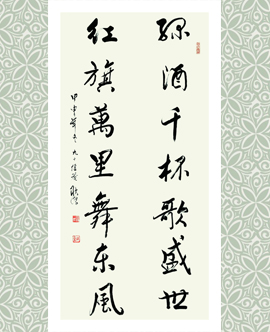 绿酒千杯歌盛世
红旗萬里舞东風
甲申年